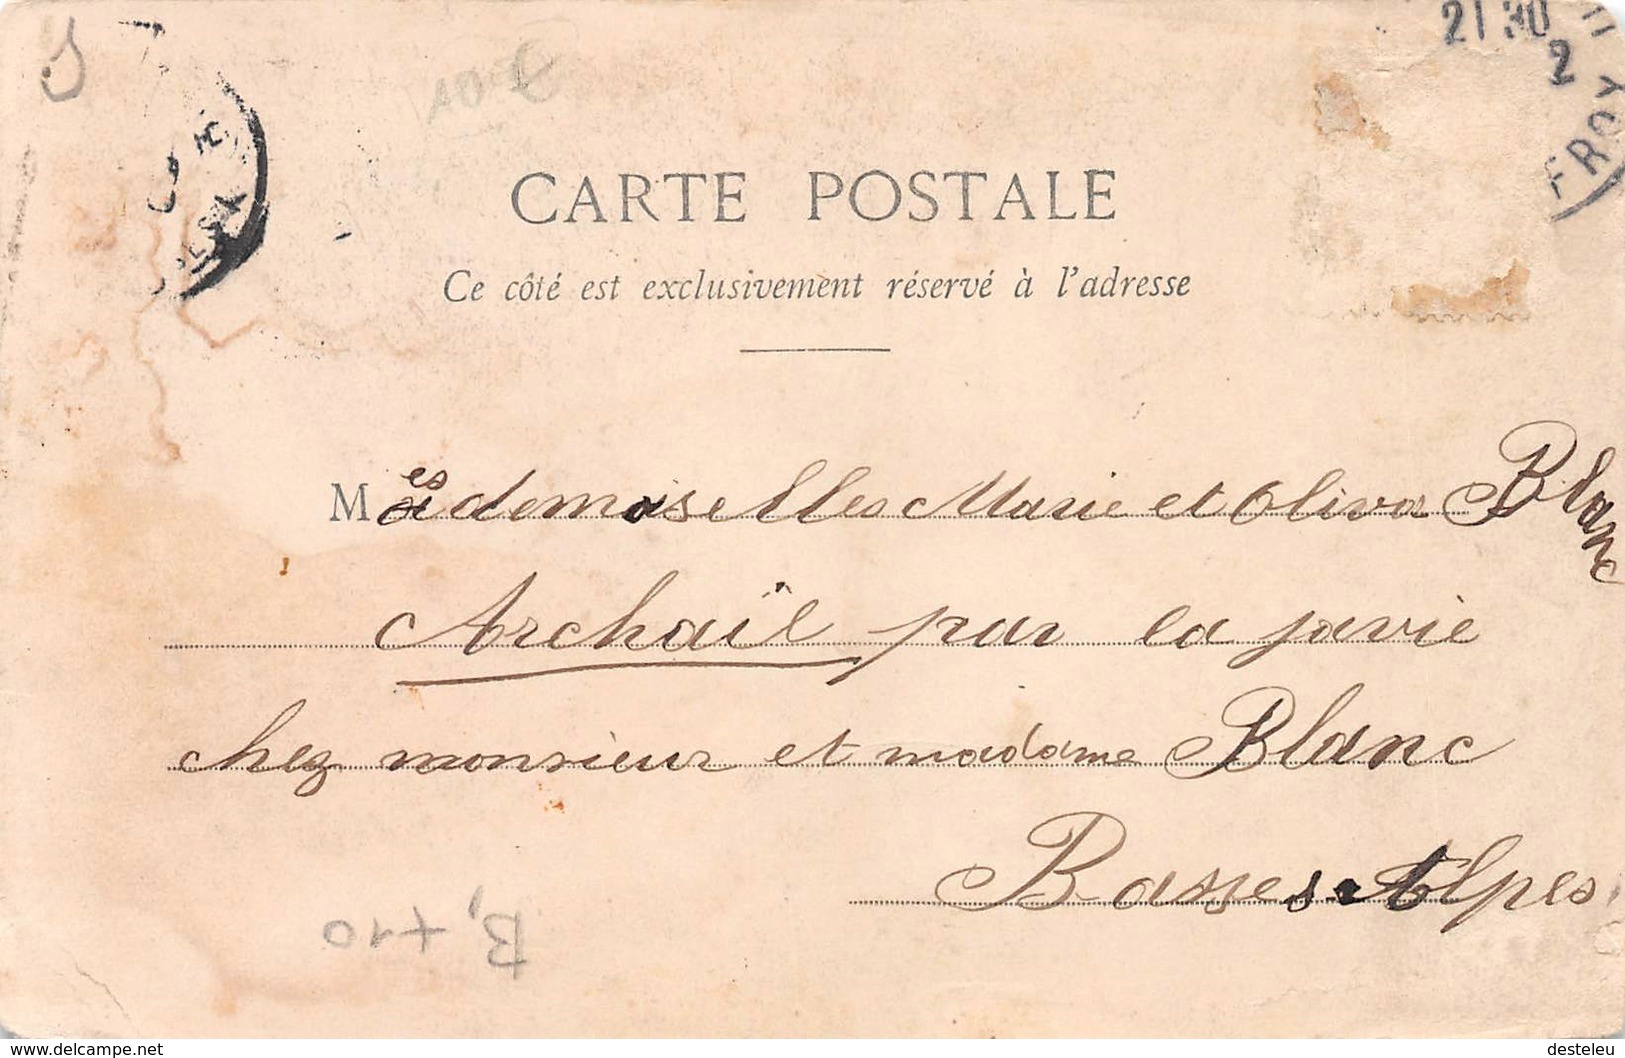 21 30
2
FROY
10 €
CARTE POSTALE
Ce côté est exclusivement réservé à l'adresse
Mesdemoiselles Marie et Oliva Blanc
Archaïl par la javie
chez monsieur et madame Blanc
Basses-Alpes
B, +10
www.delcampe.net
desteleu